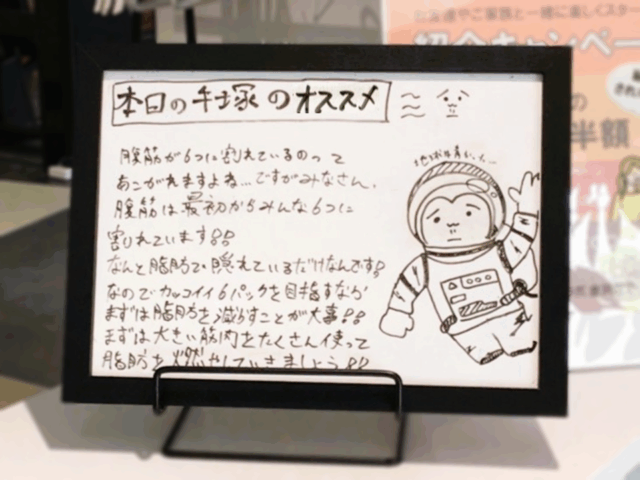 本日の手塚のオススメ
腹筋が6つに割れているのって
あこがれますよね…ですがみなさん、
腹筋は最初からみんな6つに
割れています!!
なんと脂肪で隠れているだけなんです!
なのでカッコイイ6パックを目指すなら
まずは脂肪を減らすことが大事!!
まずは大きい筋肉をたくさん使って
脂肪を燃やしていきましょう!!
地球は青い…
ご家族と一緒に楽しくスター
紹介キャンペー
の
半額